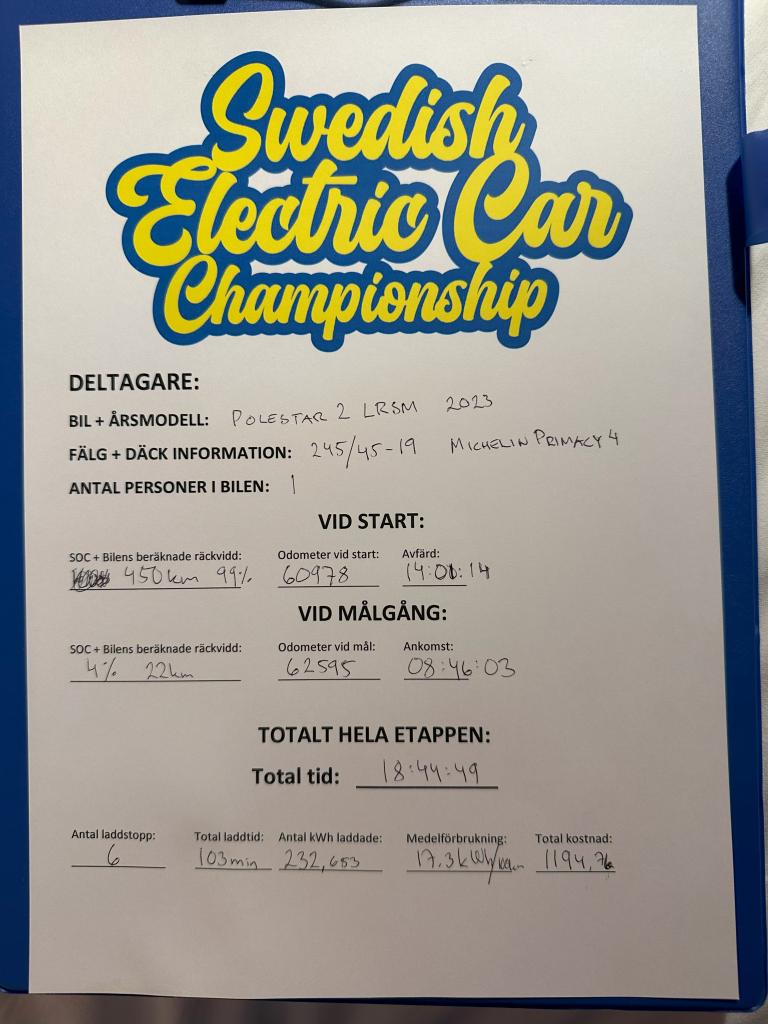 Swedish
Electric Car
Championship
DELTAGARE:
BIL + ÅRSMODELL: POLESTAR 2 LRSM 2023
FÄLG + DÄCK INFORMATION: 245/45-19 MICHELIN PRIMACY 4
ANTAL PERSONER I BILEN: 1
VID START:
SOC + Bilens beräknade räckvidd: Odometer vid start: Avfärd:
450km 99% 60978 14:01:14
VID MÅLGÅNG:
SOC + Bilens beräknade räckvidd: Odometer vid mål: Ankomst:
4% 22km 62595 08:46:03
TOTALT HELA ETAPPEN:
Total tid: 18:44:49
Antal laddstopp: Total laddtid: Antal kWh laddade: Medelförbrukning: Total kostnad:
6 103min 232,653 17.3kWh/